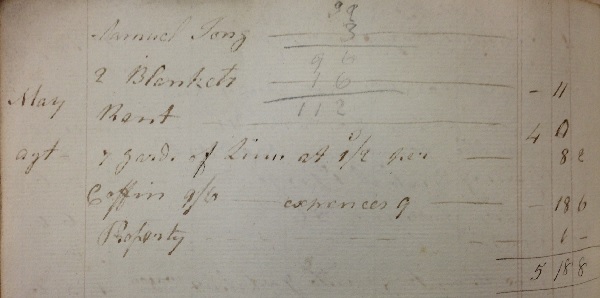 98
Samuel Tong 3.
96
2 Blankets 16 - 11
May Rant 112 4 0
agt 7 yard. of Linn at 1/2 per 8 2
Coffin 9/6 expences 9 - 18 6
Property 1 -
5 18 8